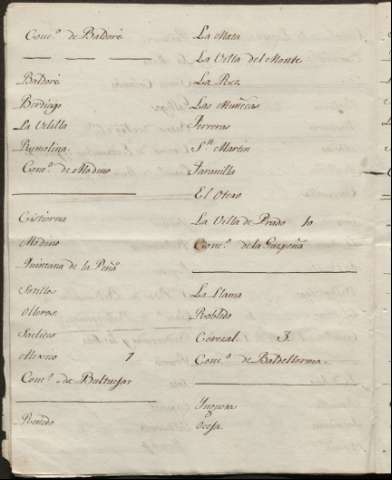 Conᵒ. de Baldoré
Baldoré
Berdiago
La Velilla
Remolina
Conᵒ. de Modino
Cistierna
Modino
Quintana de la Peña
Sotillos
Olleros
Saelices
7
Conᵒ. de
Renedo
La Mata
La Villa del Monte
La Red
Las Muñecas
Ferreras
Sⁿ. Martin
Taranilla
El Otero
La Villa de Prado 10
Concᵒ. de la Guzpeña
La Llama
Robledo
Cerezal 3.
Conᵒ. de Baldellorma
Yugueros
Ocejo